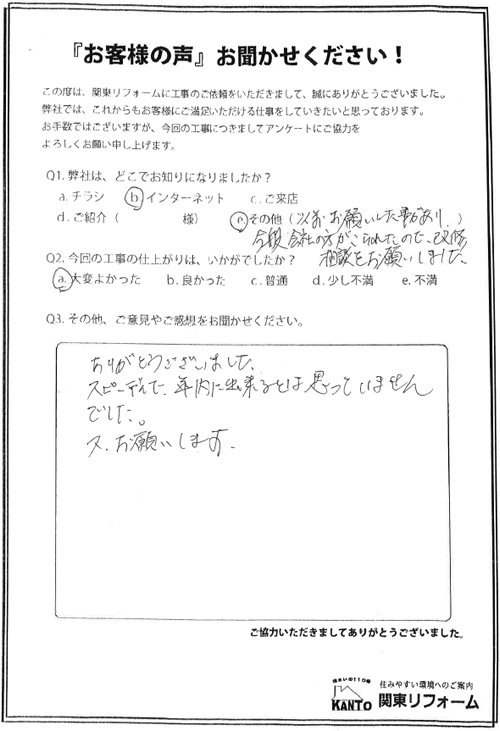 『お客様の声』お聞かせください！
この度は、関東リフォームに工事のご依頼をいただきまして、誠にありがとうございました。
弊社では、これからもお客様にご満足いただける仕事をしていきたいと思っております。
お手数ではございますが、今回の工事につきましてアンケートにご協力を
よろしくお願い申し上げます。
Q1. 弊社は、どこでお知りになりましたか？
a. チラシ b インターネット c. ご来店
d. ご紹介（ 様） e. その他（以前お願いした事があり、）
会社の方が られたので、
Q2. 今回の工事の仕上がりは、いかがでしたか？ 相談をお願いしました。
a. 大変よかった b. 良かった c. 普通 d. 少し不満 e. 不満
Q3. その他、ご意見やご感想をお聞かせください。
ありがとうございました。
スピーディで、年内に出来るとは思っていません
でした。
又、お願いします。
ご協力いただきましてありがとうございました。
住まいの110番
KANTO
住みやすい環境へのご案内
関東リフォーム